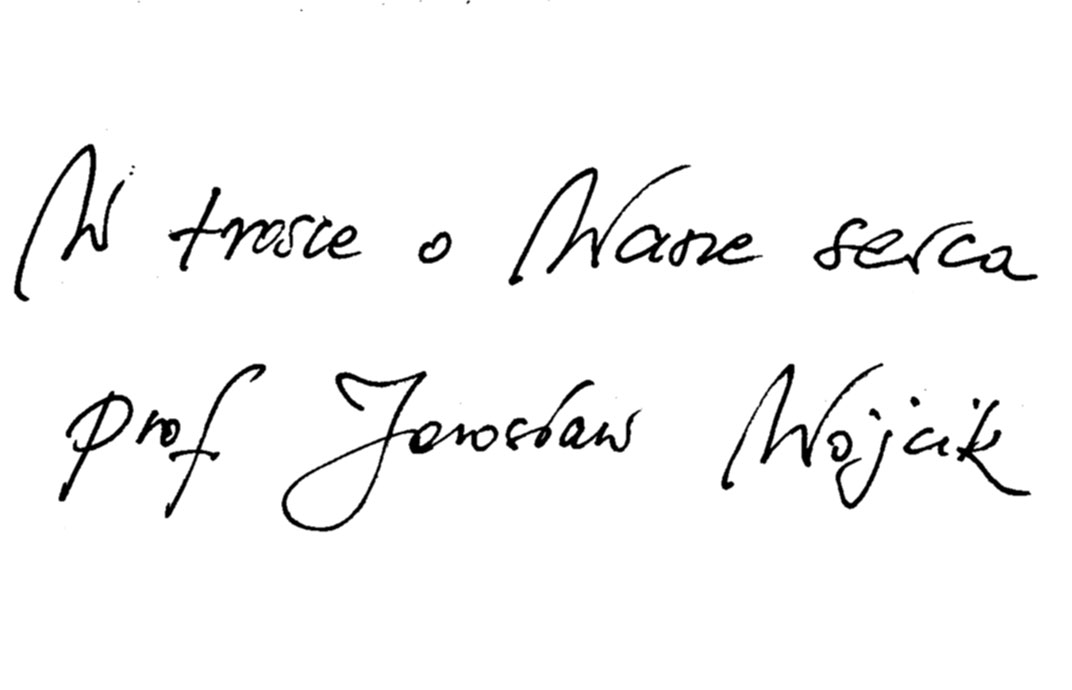 W trosce o Wasze serca
prof Jarosław Wójcik